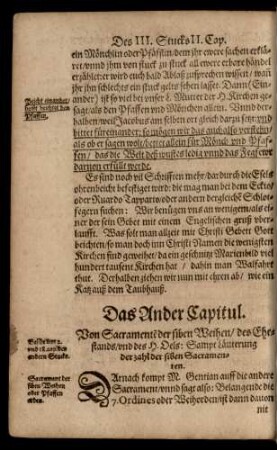 Des III. Stucks II. Cap.
ein Mönchlin oder Pfäfflin dem jhr ewere sachen erklä-
ret/vnnd jhm von stuck zu stuck all ewere erbare händel
erzählet: er wird euch bald Ablaß zusprechen wissen/ wañ
jhr jhn schlechts ein stuck gelts sehen lasset. Dann (Ein-
ander) ist so viel bey vnser l. Mutter der H. Kirchen ge-
sagt/ als den Pfaffen vnd Mönchen allein. Vnnd der-
halben/weil Jacobus am selben ort gleich darzu setzt/ vnd
bittet für einander: so mögen wir das auch also verstehn/
als ob er sagen wolt/bettet allein für Mönch vnd Pfaf-
fen/ das die Welt
darinn erfüllt werde.
Beicht einander/
Pfaffen.
Es sind noch vil Schrifften mehr/ dardurch die Esels
ohrenbeicht befestiget wird: die mag man bei dem Eckio/
oder Ruardo Tapparto/oder andern dergleichē Schlot-
fegern suchen: Wir benügen vns an wenigem/als ei-
ner der sein Gebet mit einem Engelischen gruß vber-
laufft. Was solt man allzeit mit Christi Gebett Gott
beichten/so man doch inn Christi Namen die wenigsten
Kirchen sind geweihet/ da ein geschnitzt Marienbild viel
hundert tausent Kirchen hat / dahin man Walfahrt
thut. Derhalben ziehen wir nun mit ehren ab/ wie ein
Katz auß dem Taubhauß.
Das Ander Capitul.
Von Sacrament/ der siben Weihen/ des Ehe-
stands/vnd des H. Oels: Sampt läuterung
der zahl der siben Sacramen-
ten.
andern Stucks.
Sacrament der
siben Weihen
oder Pfaffen
orden.
Darnach kompt M. Gentian auff die andere
Sacrament/vnnd sagt also: Belangende die
7. Ordines oder Weihorden/ist dann dauon
nit